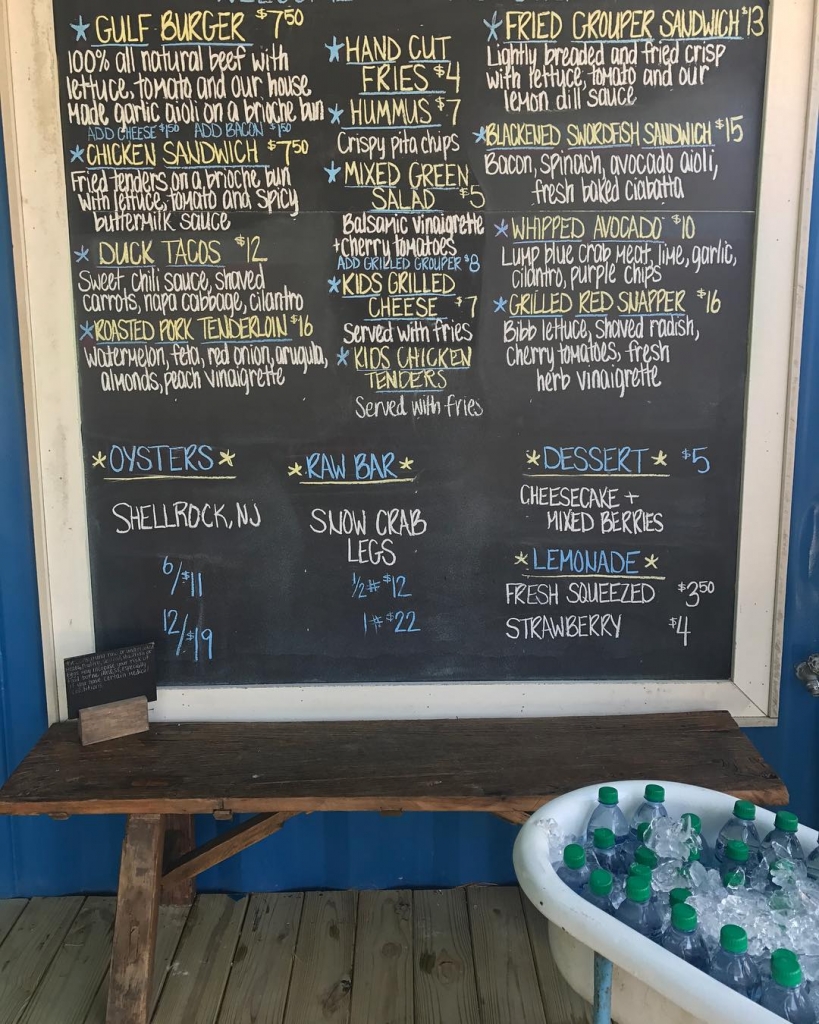 GULF BURGER $7.50
100% all natural beef with
lettuce, tomato and our house
made garlic aioli on a brioche bun
ADD CHEESE $1.50 ADD BACON $1.50
CHICKEN SANDWICH $7.50
Fried tenders on a brioche bun
with lettuce, tomato and spicy
buttermilk sauce
DUCK TACOS $12
Sweet chili sauce, shaved
carrots, napa cabbage, cilantro
ROASTED PORK TENDERLOIN $16
Watermelon, feta, red onion, arugula,
almonds, peach vinaigrette
HAND CUT
FRIES $4
HUMMUS $7
Crispy pita chips
MIXED GREEN
SALAD $5
Balsamic vinaigrette
+cherry tomatoes
ADD GRILLED GROUPER $8
KIDS GRILLED
CHEESE $7
Served with fries
KIDS CHICKEN
TENDERS
Served with fries
FRIED GROUPER SANDWICH $13
Lightly breaded and fried crisp
with lettuce, tomato and our
lemon dill sauce
BLACKENED SWORDFISH SANDWICH $15
Bacon, spinach, avocado aioli,
fresh baked ciabatta
WHIPPED AVOCADO $10
Lump blue crab meat, lime, garlic,
cilantro, purple chips
GRILLED RED SNAPPER $16
Bibb lettuce, shaved radish,
cherry tomatoes, fresh
herb vinaigrette
OYSTERS
SHELLROCK, NJ
6/$11
12/$19
RAW BAR
SNOW CRAB
LEGS
1/2# $12
1# $22
DESSERT $5
CHEESECAKE +
MIXED BERRIES
LEMONADE
FRESH SQUEEZED $3.50
STRAWBERRY $4